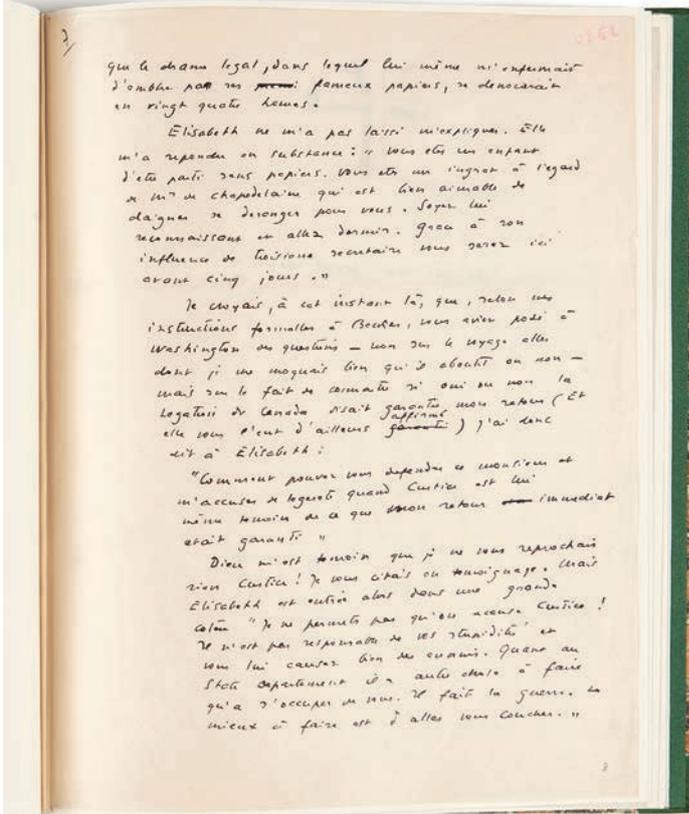 7
que le drame légal, dans lequel lui même m'enfermait
d'emblée par ses fameux papiers, se dénouerait
en vingt quatre heures.
Elisabeth ne m'a pas laissé m'expliquer. Elle
m'a repondu en substance : " vous etes un enfant
d'etre parti sans papiers. Vous etes un ingrat à l'egard
de Mr de Chapedelaine qui est bien aimable de
daigner se deranger pour vous. Soyez lui
reconnaissant et allez dormir. Grace à son
influence de troisième secretaire vous serez ici
avant cinq jours. "
Je croyais, à cet instant là, que, selon mes
instructions formelles à Becker, vous aviez posé à
Washington des questions — non sur le voyage aller
dont je me moquais bien qu'il aboutit ou non —
mais sur le fait de connaitre si oui ou non la
Legation du Canada disait garantir mon retour ( Et
elle vous l'eut d'ailleurs garanti affirmé ) j'ai donc
dit à Elisabeth :
" Comment pouvez vous defendre ce monsieur et
m'accuser de legereté quand Curtice est lui
même temoin de ce que mon retour immediat
etait garanti "
Dieu m'est temoin que je ne vous reprochais
rien Curtice ! Je vous citais en temoignage. Mais
Elisabeth est entrée alors dans une grande
colère " Je ne permets pas qu'on accuse Curtice !
Il n'est pas responsable de vos stupidités et
vous lui causez bien des ennuis. Quant au
State Departement il a autre chose à faire
qu'a s'occuper de vous. Il fait la guerre. Le
mieux à faire est d'aller vous coucher. "
8